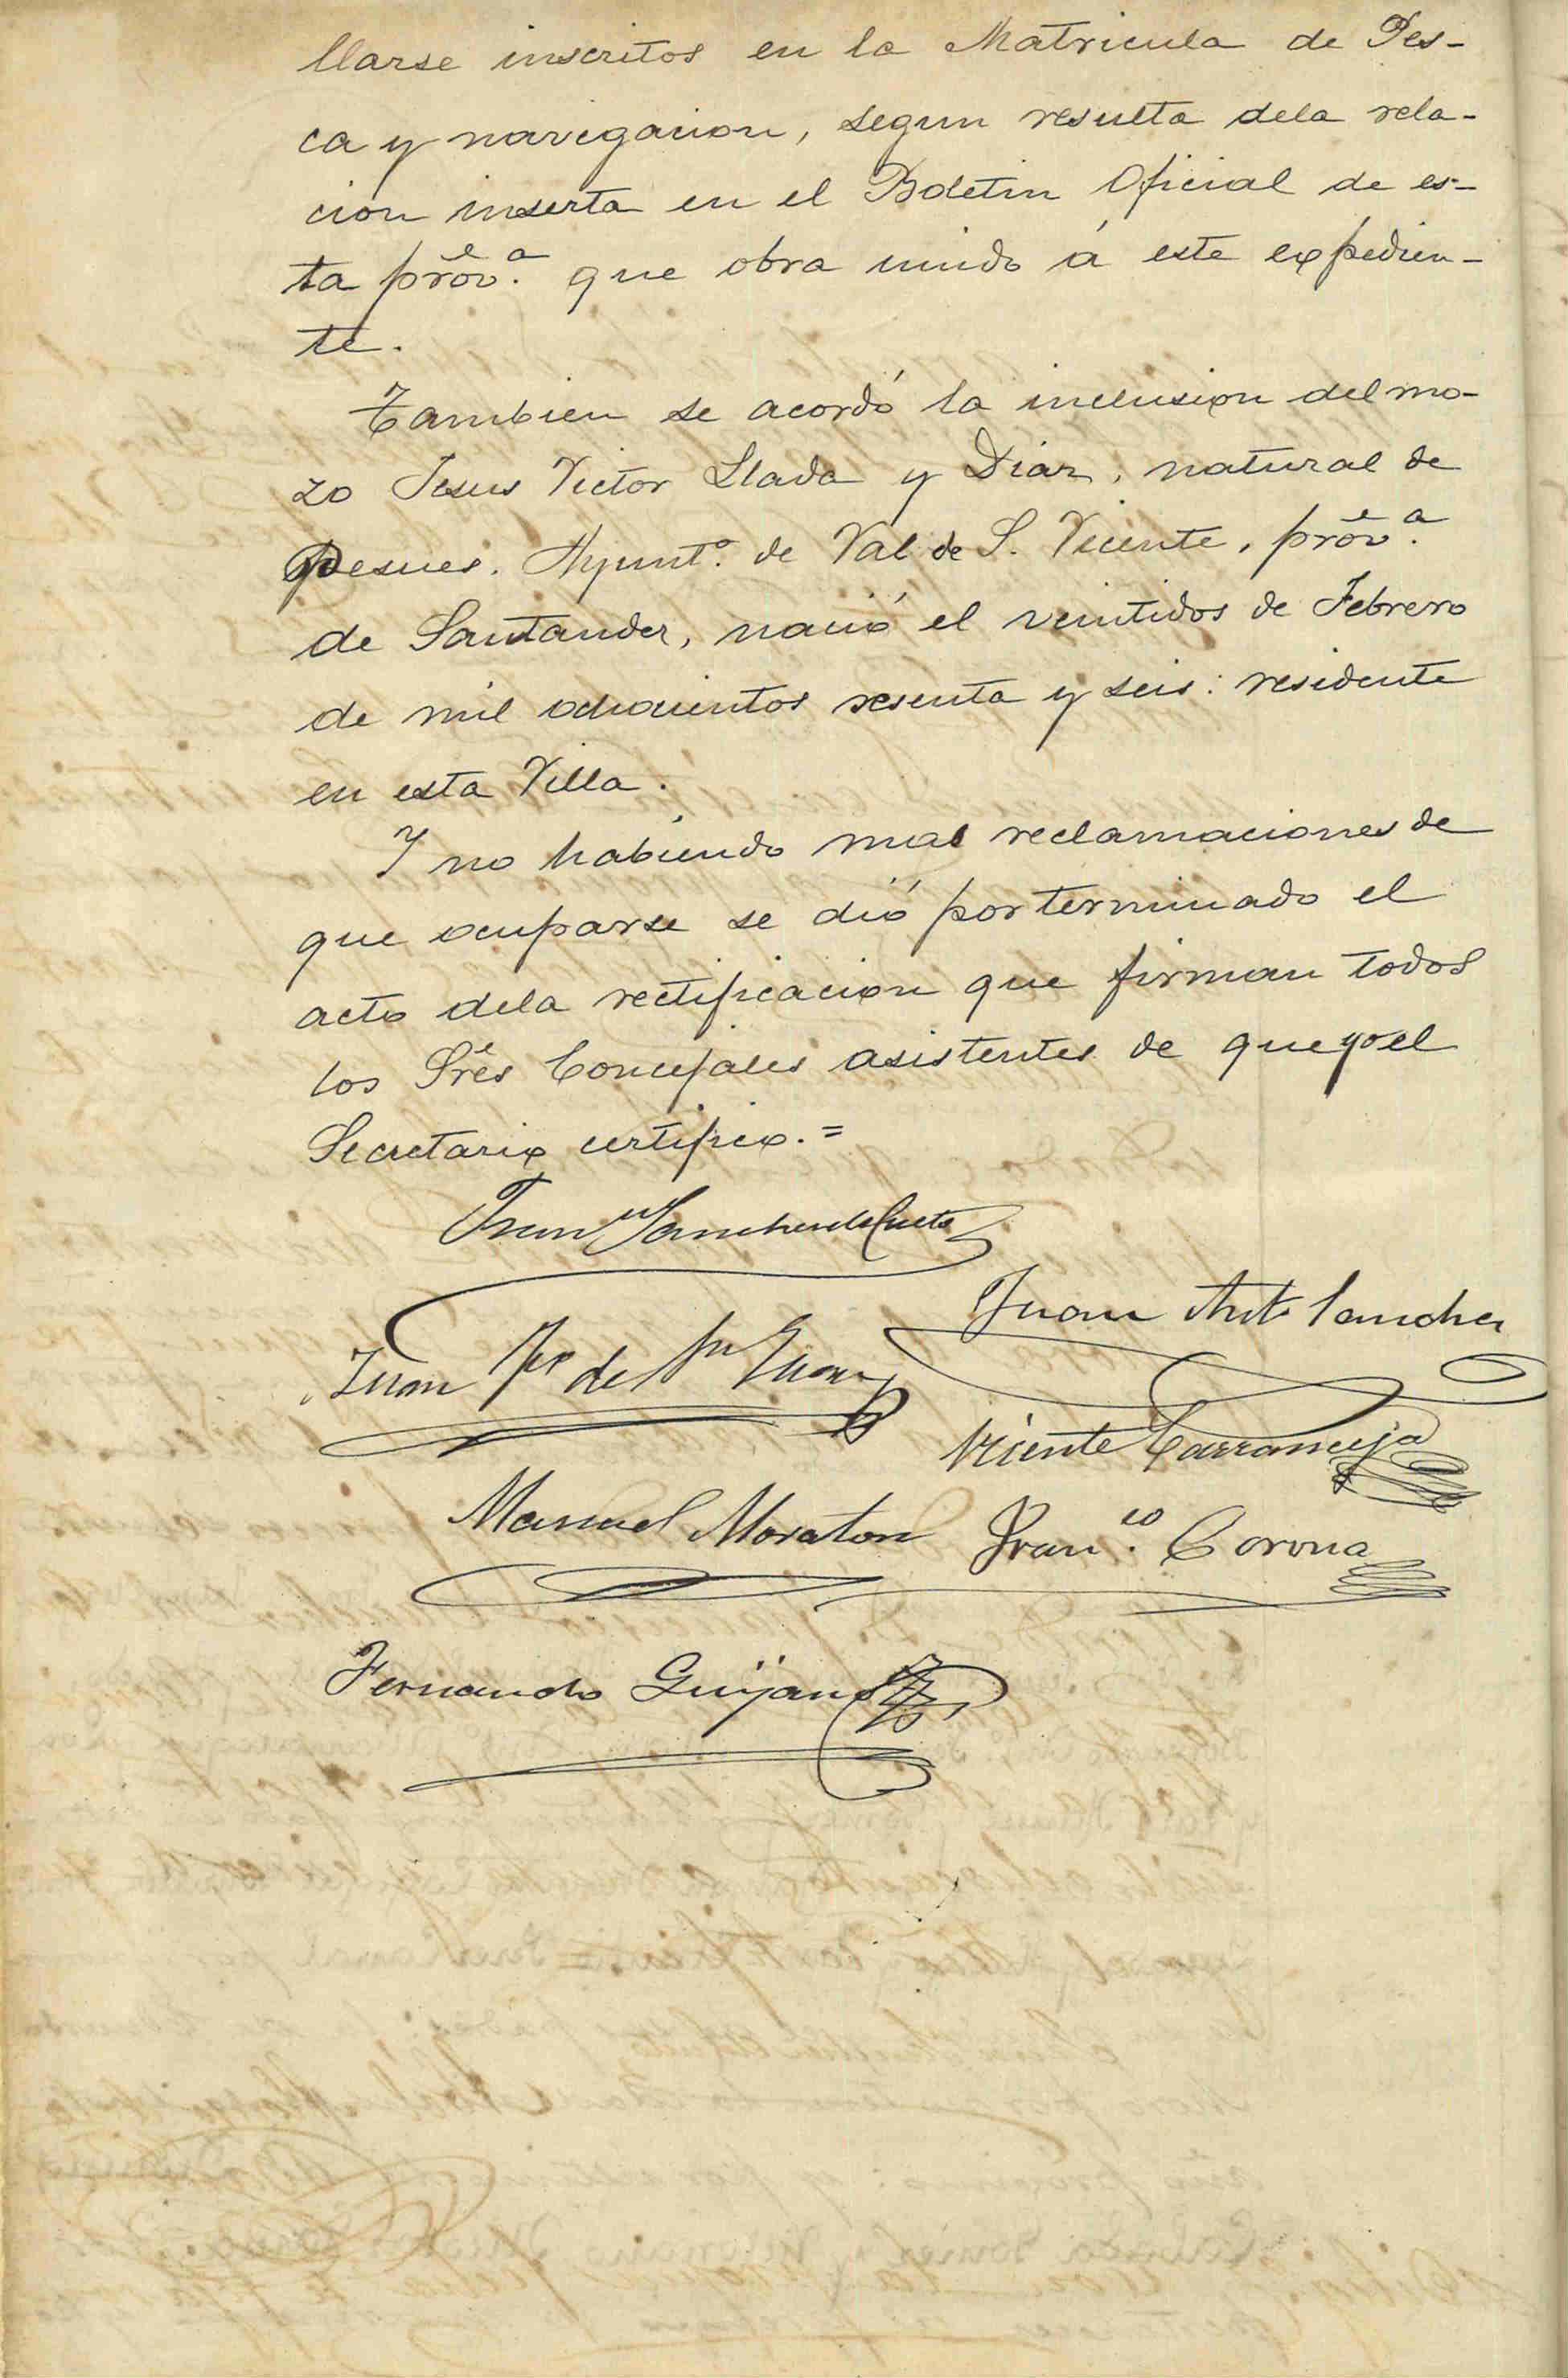 llarse inscritos en la Matricula de Pes-
ca y navegacion, segun resulta dela rela-
cion inserta en el Boletin Oficial de es-
ta prov.ª que obra unido á este expedien-
te.
Tambien se acordó la inclusion del mo-
zo Jesus Victor Llada y Diaz, natural de
Pesues. Ayunt.º de Val de S. Vicente, prov.ª
de Santander, nació el veintidos de Febrero
de mil ochocientos sesenta y seis: residente
en esta Villa.
Y no habiendo mas reclamaciones de
que ocuparse se dió por terminado el
acto dela rectificacion que firman todos
los Sres Concejales asistentes de que yo el
Secretario certifico.=
Fran Sanchez de Cueto
Juan Ant Sanchez
Juan de Sn Juan
Vicente Carranceja
Manuel Moraton Fran.co Corona
Fernando Guijan